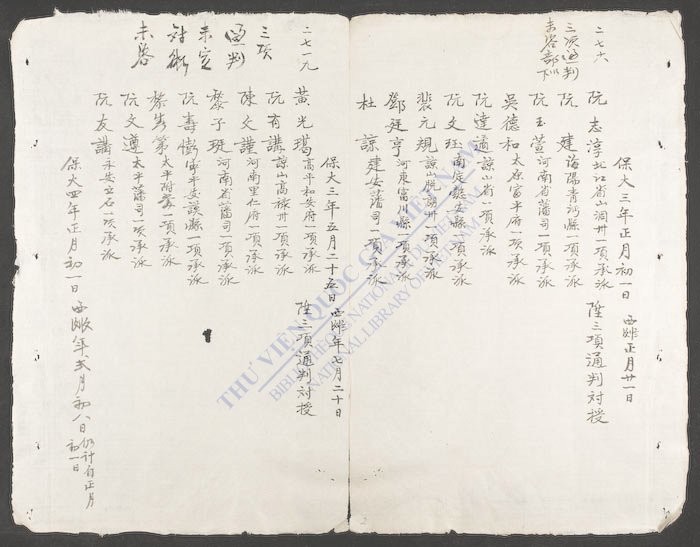 二七六
三項通判
未啓部
保大三年正月初一日 西曆正月廿一日
陞三項通判対授
阮志淳北江省山洞卅一項承派
阮建海陽青河縣一項承派
阮玉萱河南省藩司一項承派
吳德和太原富平府一項承派
阮達遹諒山省一項承派
阮文珏南定懿安縣一項承派
裴元規諒山脱朗卅一項承派
鄧廷亨河東富川縣一項承派
杜諒建安藩司一項承派
二七一九
三項
通判
未定
対銜
未啓
保大三年五月二十五日 西曆年七月二十日
陞三項通判対授
黃光璣高平和安府一項承派
阮有講諒山高禄卅一項承派
陳文謹河南里仁府一項承派
黎子珽河南省藩司一項承派
阮壽 安謨縣一項承派
黎 第太平附 一項承派
阮文遵太平藩司一項承派
阮友講 安立石一項承派
保大四年正月初一日 西曆年弍月初八日仍計自正月
初一日
THƯ VIỆN QUỐC GIA VIỆT NAM
BIBLIOTHEQUE NATIONALE DU VIETNAM
NATIONAL LIBRARY OF VIETNAM